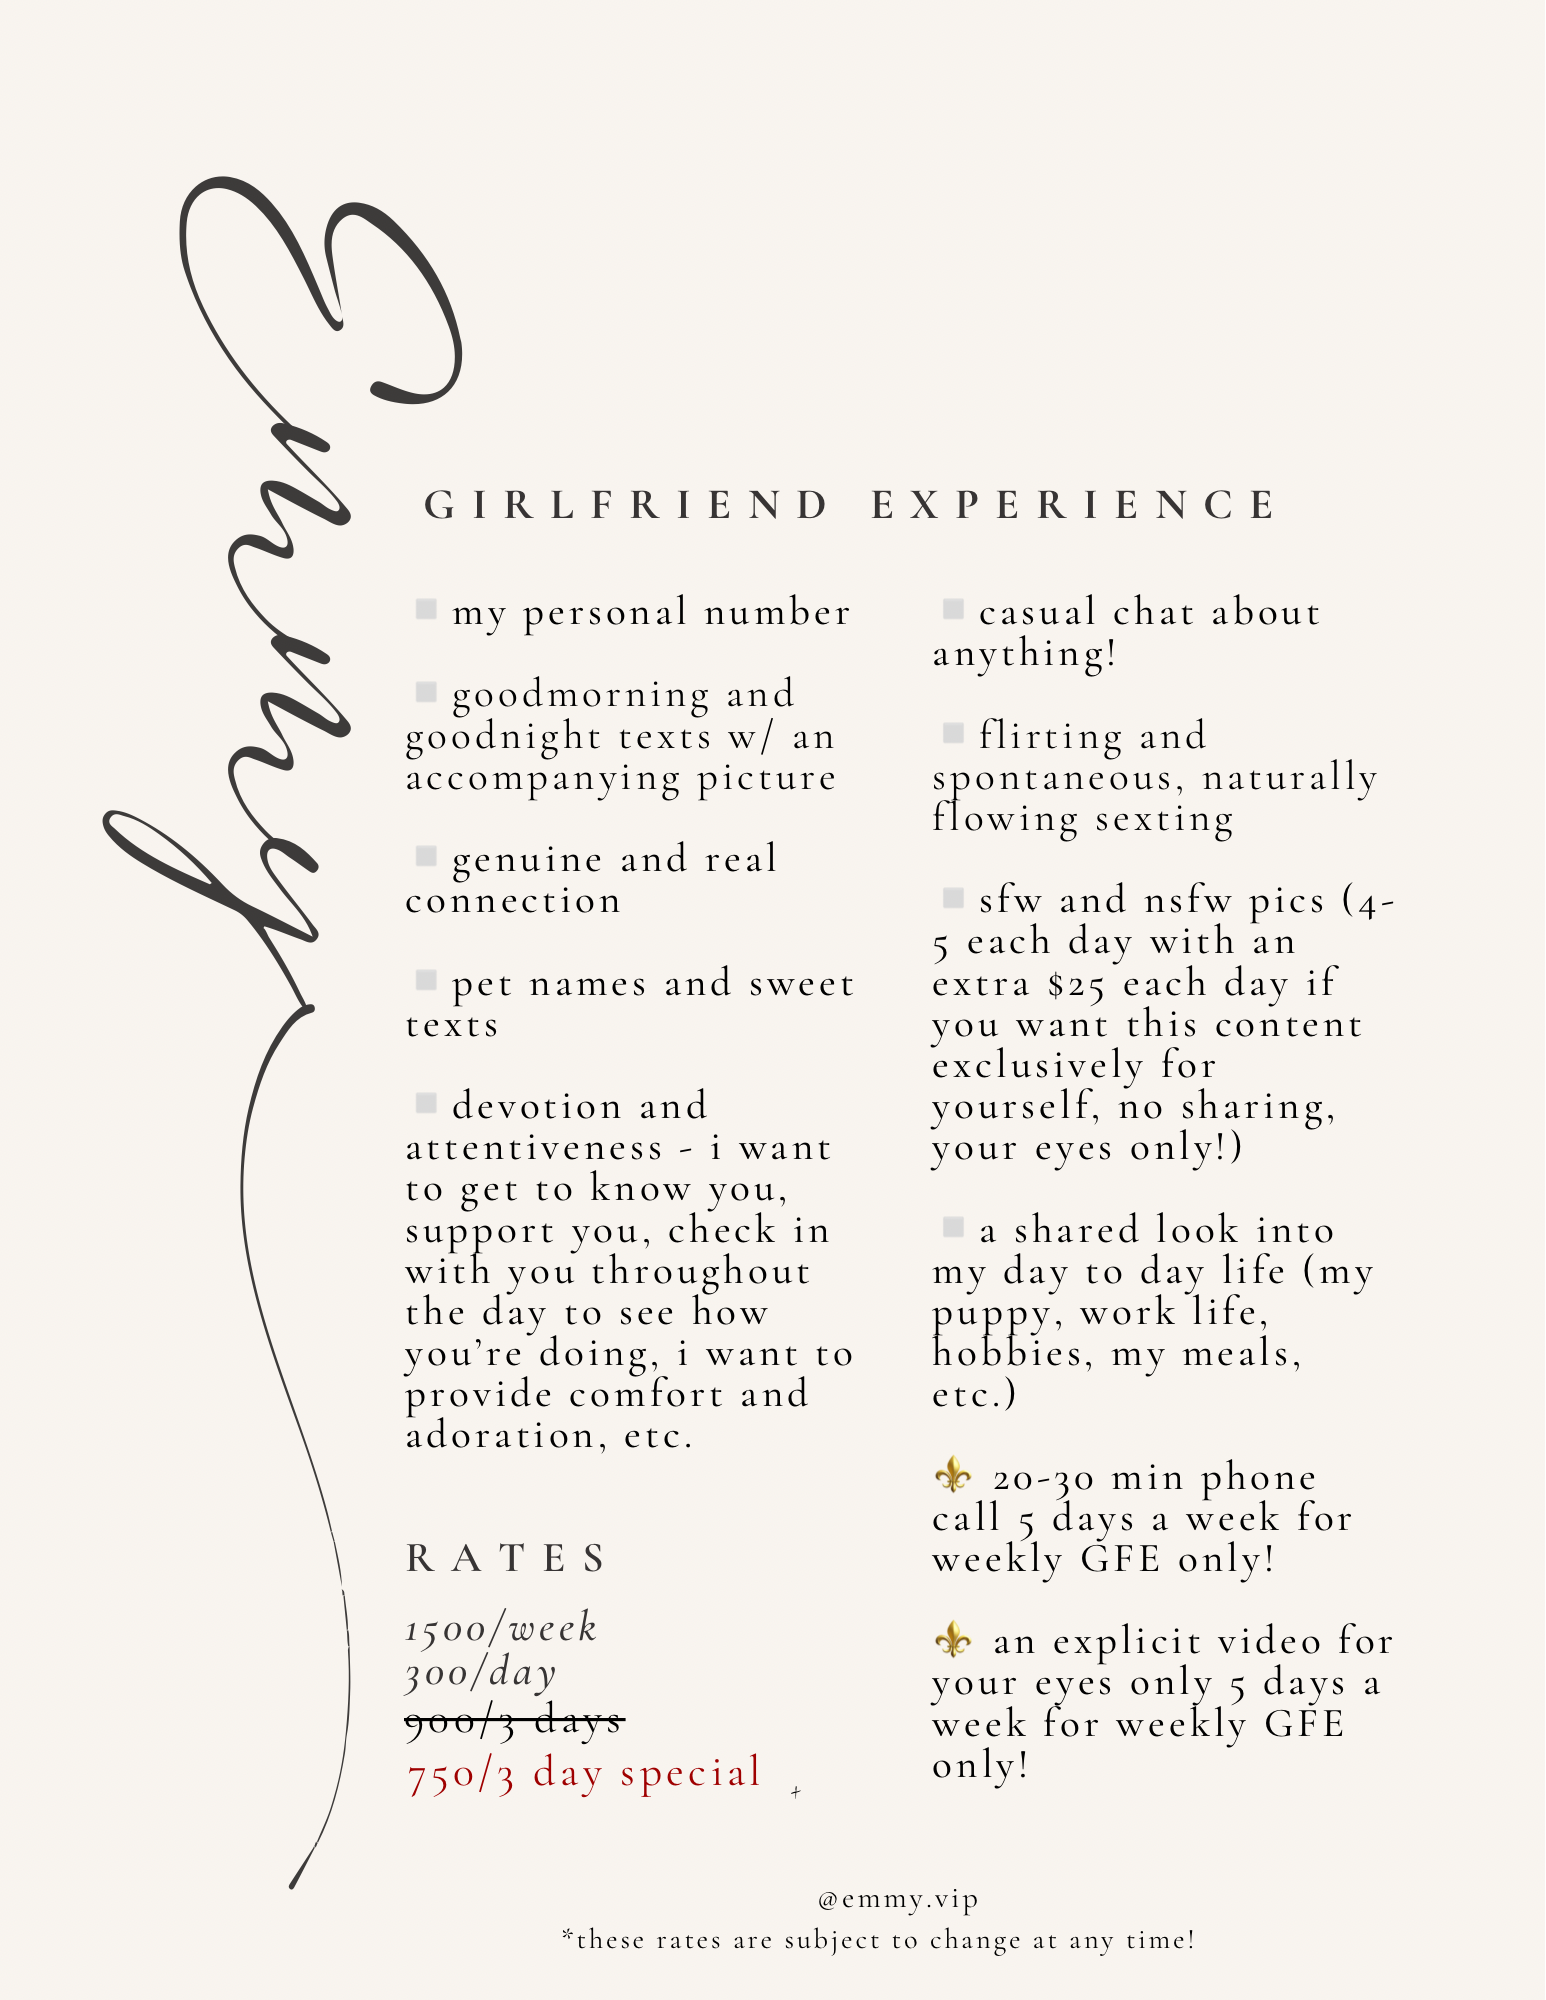 Emmy
GIRLFRIEND EXPERIENCE
my personal number
goodmorning and
goodnight texts w/ an
accompanying picture
genuine and real
connection
pet names and sweet
texts
devotion and
attentiveness - i want
to get to know you,
support you, check in
with you throughout
the day to see how
you’re doing, i want to
provide comfort and
adoration, etc.
RATES
1500/week
300/day
900/3 days
750/3 day special
+
casual chat about
anything!
flirting and
spontaneous, naturally
flowing sexting
sfw and nsfw pics (4-
5 each day with an
extra $25 each day if
you want this content
exclusively for
yourself, no sharing,
your eyes only!)
a shared look into
my day to day life (my
puppy, work life,
hobbies, my meals,
etc.)
⚜️ 20-30 min phone
call 5 days a week for
weekly GFE only!
⚜️ an explicit video for
your eyes only 5 days a
week for weekly GFE
only!
@emmy.vip
*these rates are subject to change at any time!